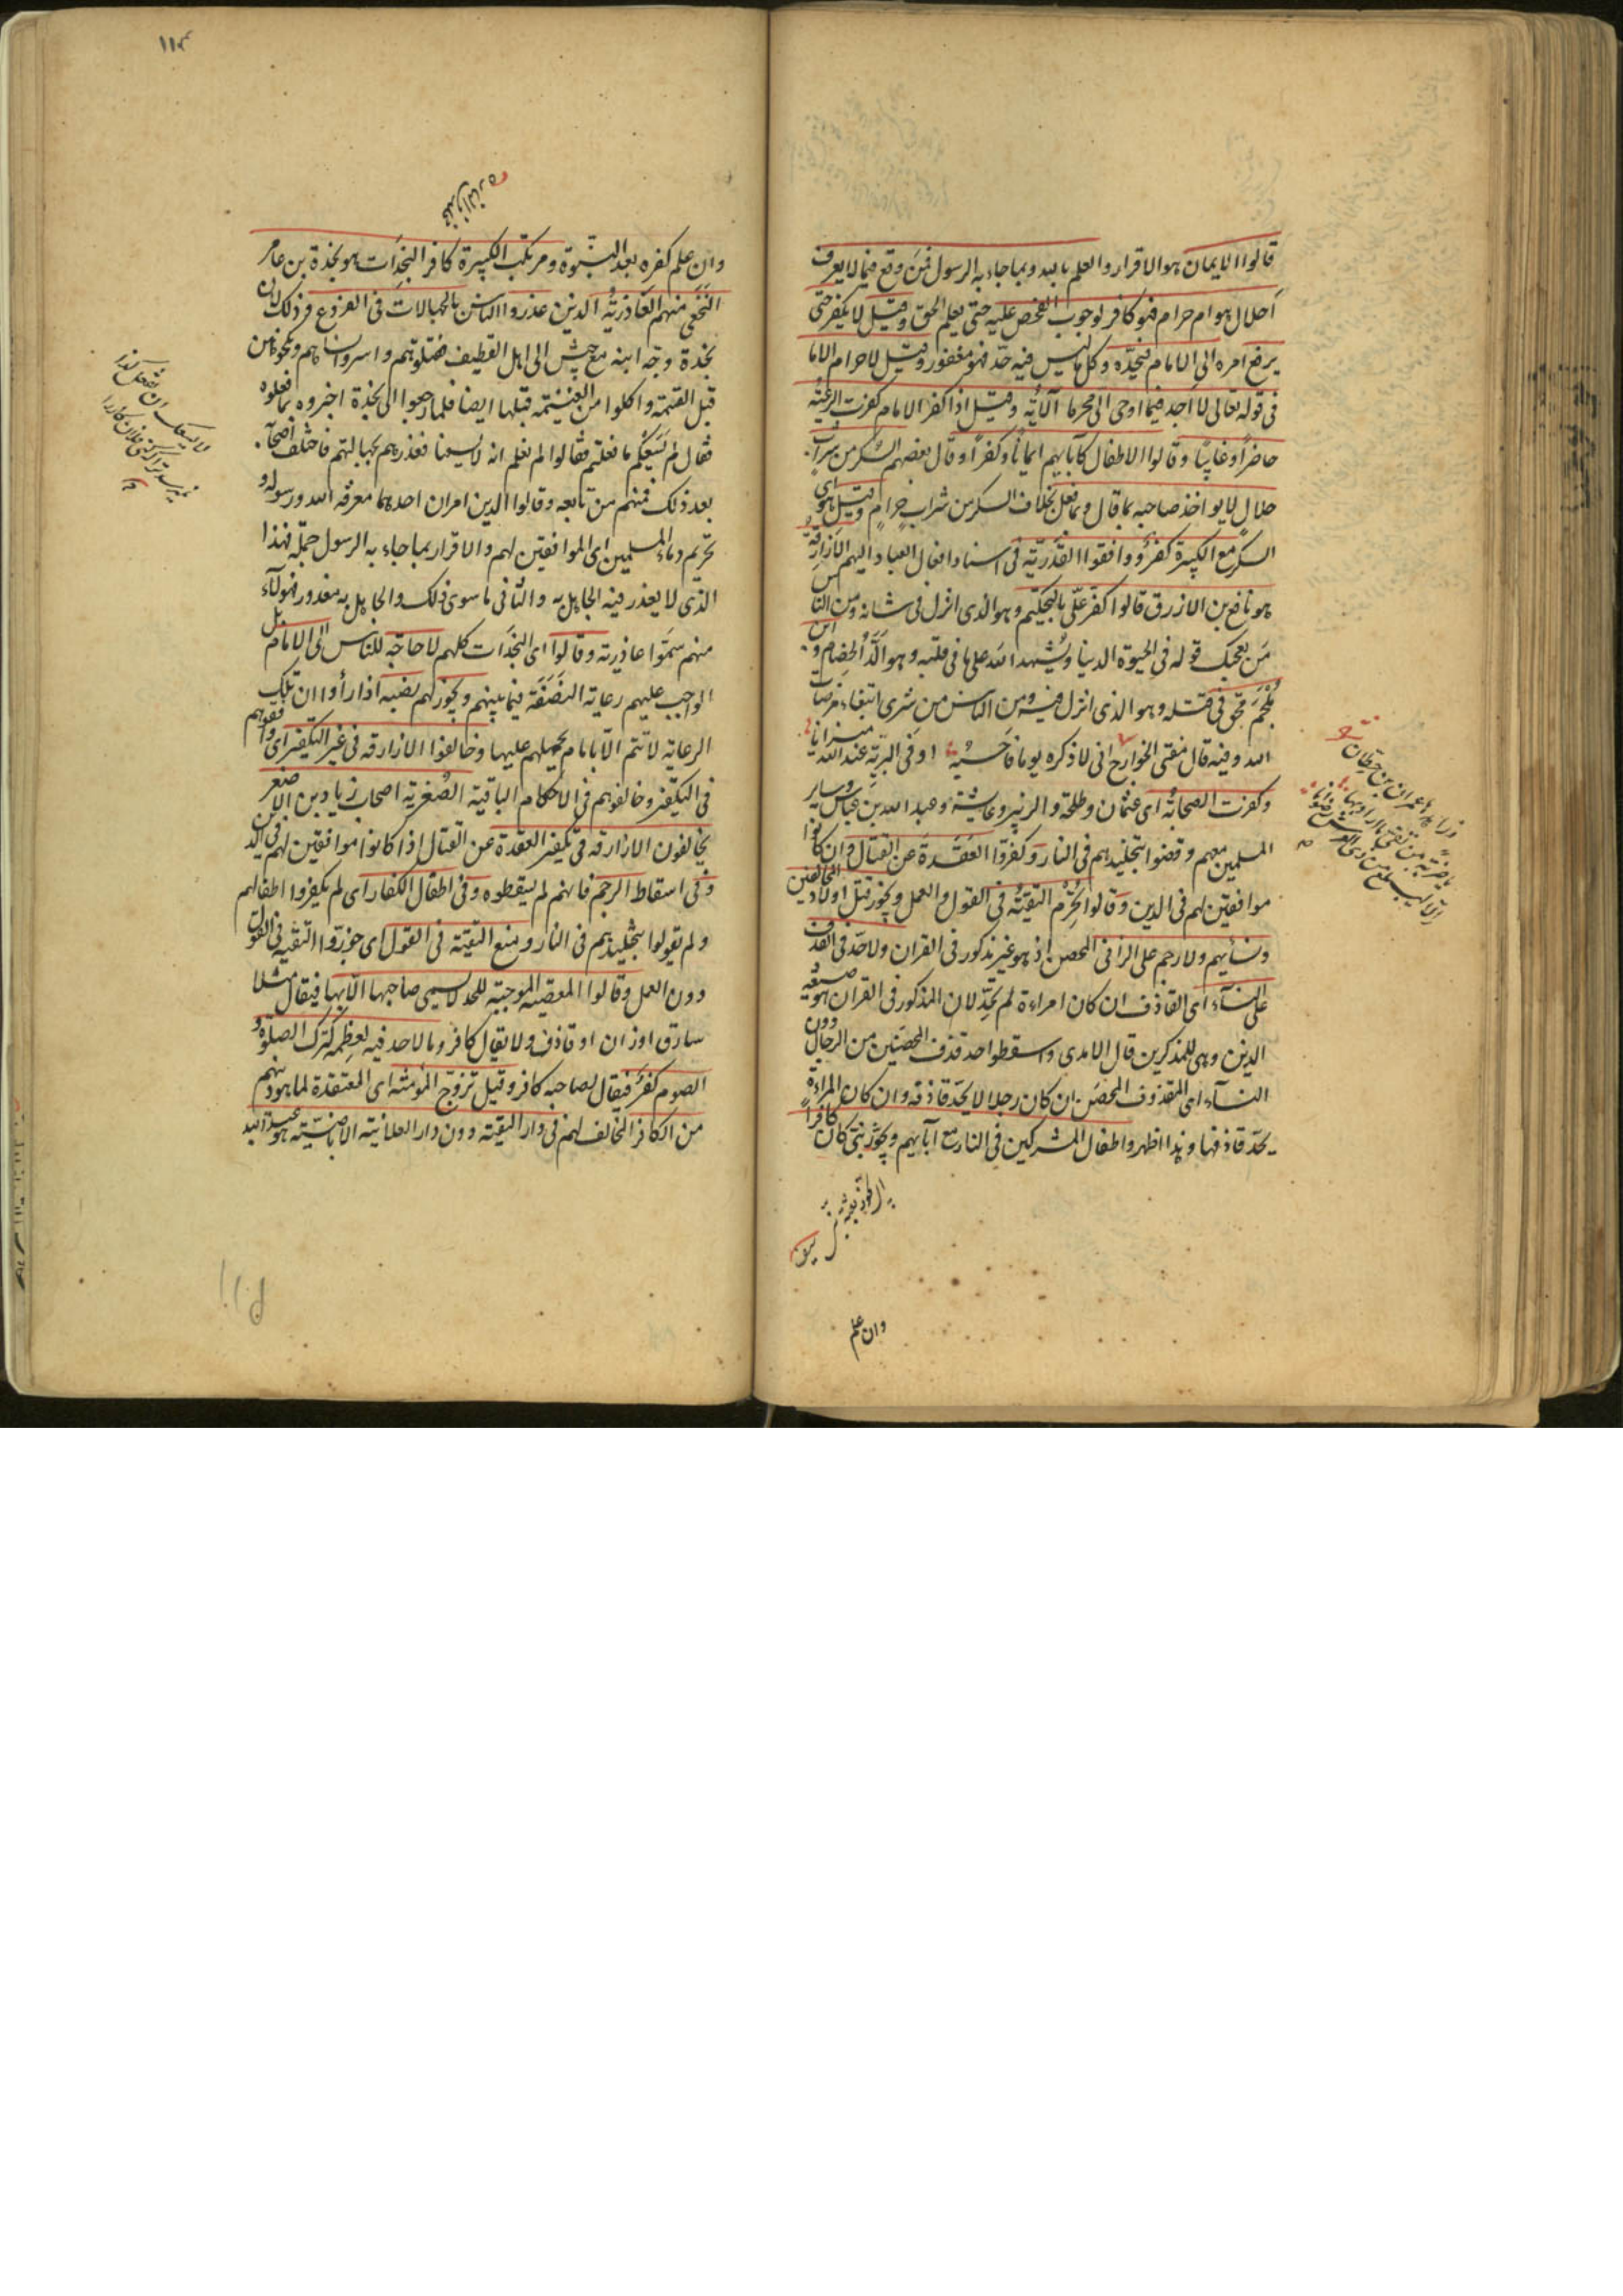 قالوا الايمان هو الاقرار والعلم بالله وبما جاء به الرسول فمن وقع فيما لا يعرف
أحلال هو ام حرام فهو كافر لوجوب الفحص عليه حتى يعلم الحق وقيل لا يكفر حتى
يرفع امره الى الامام فيحدّه وكل ما ليس فيه حدّ فهو مغفور وقيل لا حرام الا ما
فى قوله تعالى لا اجد فيما اوحى الى محرما الآية وقيل اذا كفر الامام كفرت الرعيّة
حاضرًا وغايبًا وقالوا الاطفال كآبايهم ايمانًا وكفرًا وقال بعضهم السكر من شراب
حلالٍ لا يواخذ صاحبه بما قال وفعل بخلاف السكر من شراب حرامٍ وقيل هو اى
السكر مع الكبيرة كفرٌ ووافقوا القدريّة فى اسناد افعال العباد اليهم الازارقة
هو نافع بن الازرق قالوا كفر علىّ بالتحكيم وهو الذى انزل فى شانه ومن الناس
مَن يعجبك قوله فى الحيوة الدنيا ويُشهد الله على ما فى قلبه وهو ألدّ الخصام و ابن
مُلجَم محق فى قتله وهو الذى انزل فيه ومن الناس من يشرى ابتغاء مرضات
الله وفيه قال مفتى الخوارج انى لاذكره يوما فاحسبه اوفى البريّة عند الله ميزانا
وكفرت الصحابة اى عثمان وطلحة والزبير وعايشة وعبد الله بن عباس وساير
المسلمين معهم وقضوا بتخليدهم فى النار وكفروا القَعَدَة عن القتال وان كانوا
موافقين لهم فى الدين وقالوا تحرم التقيّة فى القول والعمل ويجوز قتل اولاد المخالفين
ونسائهم ولا رجم على الزانى المحصن اذ هو غير مذكور فى القران ولا حدّ فى القذف
على النسآء اى القاذف ان كان امراءة لم تحدّ لان المذكور فى القران هو صيغة
الذين وهى للمذكرين قال الامدى واسقطوا حد قذف المحصنين من الرجال دون
النسآء اى المقذوف المحصن ان كان رجلا لا يحدّ قاذفه وان كان المراءة
يحدّ قاذفها وهذا اظهر واطفال المشركين فى النار مع آبآيهم ويجوز نبىّ كان كافرًا
وان علم
١١٤
وان علم كفره بعد النبوّة ومرتكب الكبيرة كافر النجدات هو نجدة بن عامر
النخعى منهم العاذريّة الذين عذروا الناس بالجهالات فى الفروع وذلك لان
نجدة وجّه ابنه مع جيش الى اهل القطيف فقتلوهم واسروا نساءهم ونكحوهن
قبل القسمة واكلوا من الغنيمة قبلها ايضا فلما رجعوا الى نجدة اخبروه بما فعلوه
فقال لم يَسَعكم ما فعلتم فقالوا لم نعلم انه لا يسعنا فعذرهم بجهالتهم فاختلف اصحابه
بعد ذلك فمنهم من تابعه وقالوا الدين امران احدهما معرفة الله ورسوله و
تحريم دماء المسلمين اى الموافقين لهم والاقرار بما جاء به الرسول جملة فهذا
الذى لا يعذر فيه الجاهل به والثانى ما سوى ذلك والجاهل به معذور فهولآء
منهم سمّوا عاذرية وقالوا اى النجدات كلهم لا حاجة للناس الى الامام بل
الواجب عليهم رعاية النصَفَة فيما بينهم ويجوز لهم نصبه اذا رأوا ان تلك
الرعاية لا تتم الا بامام يحملهم عليها وخالفوا الازارقة فى غير التكفير اى وافقوهم
فى التكفير وخالفوهم فى الاحكام الباقية الصُفرية اصحاب زياد بن الاصفر
يخالفون الازارقة فى تكفير القعدة عن القتال اذا كانوا موافقين لهم فى الدين
وفى اسقاط الرجم فانهم لم يسقطوه وفى اطفال الكفار اى لم يكفروا اطفالهم
ولم يقولوا بتخليدهم فى النار ومنع التقيّة فى القول اى جوزوا التقية فى القول
دون العمل وقالوا المعصية الموجبة للحد لا يسمى صاحبها الا بها فيقال مثلا
سارق او زان او قاذف ولا يقال كافر وما لا حد فيه لعِظمه كترك الصلوة و
الصوم كفرٌ فيقال لصاحبه كافر وقيل تزوج المؤمنة اى المعتقدة لما هو دينهم
من الكافر المخالف لهم فى دار التقية دون دار العلانية الاباضيّة هو عبد الله